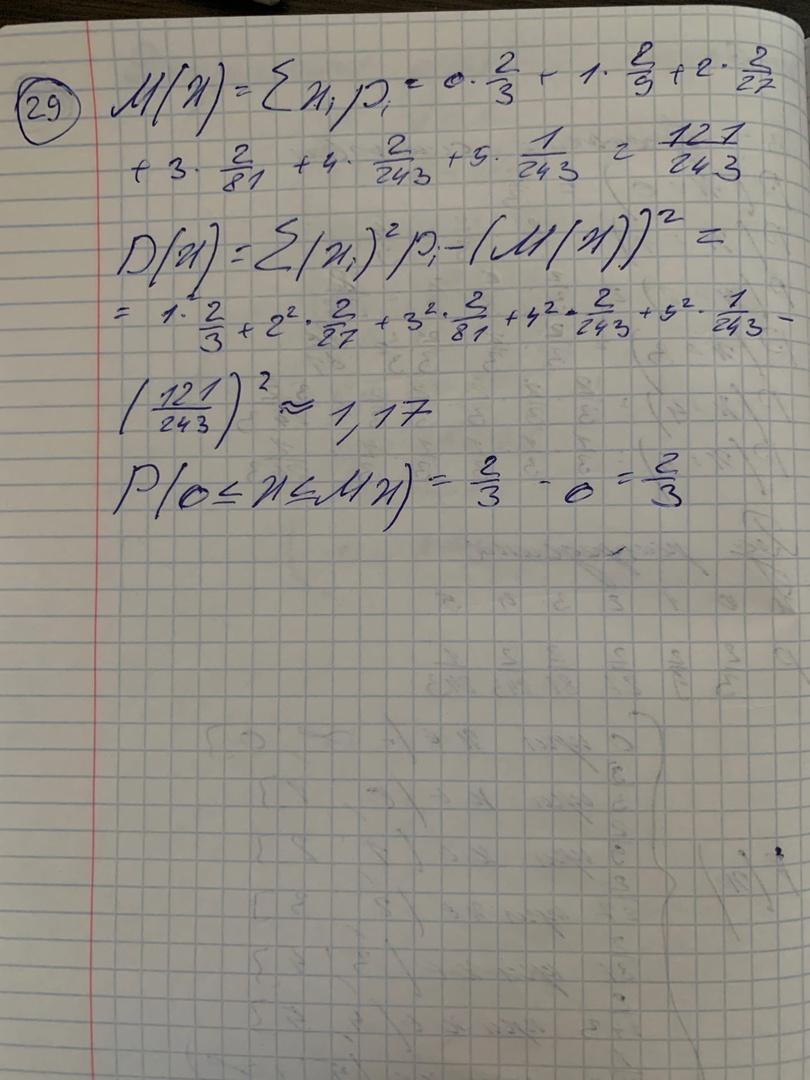 29
M(x) = Σ xᵢ pᵢ = 0 · 2/3 + 1 · 2/9 + 2 · 2/27
+ 3 · 2/81 + 4 · 2/243 + 5 · 1/243 = 121/243
D(x) = Σ(xᵢ)² pᵢ – (M(x))² =
= 1 · 2/3 + 2² · 2/27 + 3² · 2/81 + 4² · 2/243 + 5² · 1/243 –
(121/243)² ≈ 1,17
P(0 ≤ x ≤ Mx) = 2/3 - 0 = 2/3